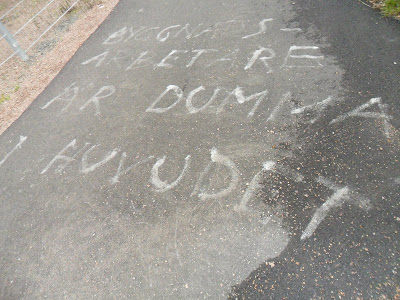 BYGGNADS-
ARBETARE
ÄR DUMMA
I HUVUDET